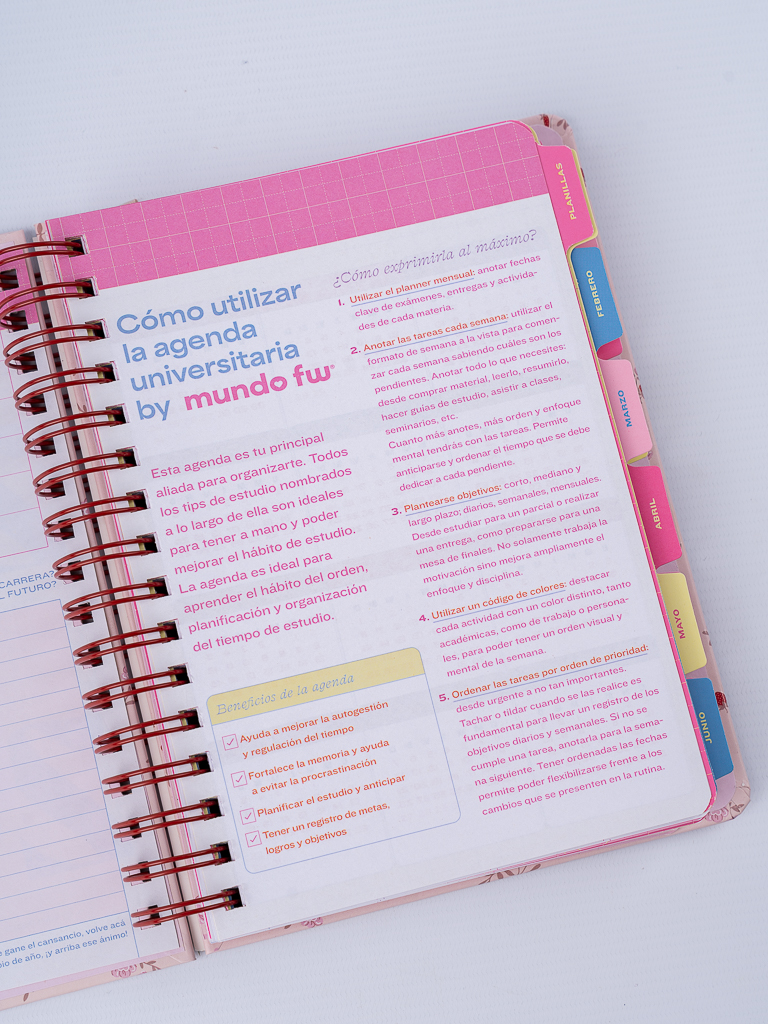 Cómo utilizar
la agenda
universitaria
by mundo fw®
Esta agenda es tu principal
aliada para organizarte. Todos
los tips de estudio nombrados
a lo largo de ella son ideales
para tener a mano y poder
mejorar el hábito de estudio.
La agenda es ideal para
aprender el hábito del orden,
planificación y organización
del tiempo de estudio.
Beneficios de la agenda
Ayuda a mejorar la autogestión
y regulación del tiempo
Fortalece la memoria y ayuda
a evitar la procrastinación
Planificar el estudio y anticipar
Tener un registro de metas,
logros y objetivos
¿Cómo exprimirla al máximo?
1. Utilizar el planner mensual: anotar fechas
clave de exámenes, entregas y activida-
des de cada materia.
2. Anotar las tareas cada semana: utilizar el
formato de semana a la vista para comen-
zar cada semana sabiendo cuáles son los
pendientes. Anotar todo lo que necesites:
desde comprar material, leerlo, resumirlo,
hacer guías de estudio, asistir a clases,
seminarios, etc.
Cuanto más anotes, más orden y enfoque
mental tendrás con las tareas. Permite
anticiparse y ordenar el tiempo que se debe
dedicar a cada pendiente.
3. Plantearse objetivos: corto, mediano y
largo plazo; diarios, semanales, mensuales.
Desde estudiar para un parcial o realizar
una entrega, como prepararse para una
mesa de finales. No solamente trabaja la
motivación sino mejora ampliamente el
enfoque y disciplina.
4. Utilizar un código de colores: destacar
cada actividad con un color distinto, tanto
académicas, como de trabajo o persona-
les, para poder tener un orden visual y
mental de la semana.
5. Ordenar las tareas por orden de prioridad:
desde urgente a no tan importantes.
Tachar o tildar cuando se las realice es
fundamental para llevar un registro de los
objetivos diarios y semanales. Si no se
cumple una tarea, anotarla para la sema-
na siguiente. Tener ordenadas las fechas
permite poder flexibilizarse frente a los
cambios que se presenten en la rutina.
PLANILLAS
FEBRERO
MARZO
ABRIL
MAYO
JUNIO
CARRERA?
L FUTURO?
e gane el cansancio, volve acá
pio de año, ¡y arriba ese ánimo!